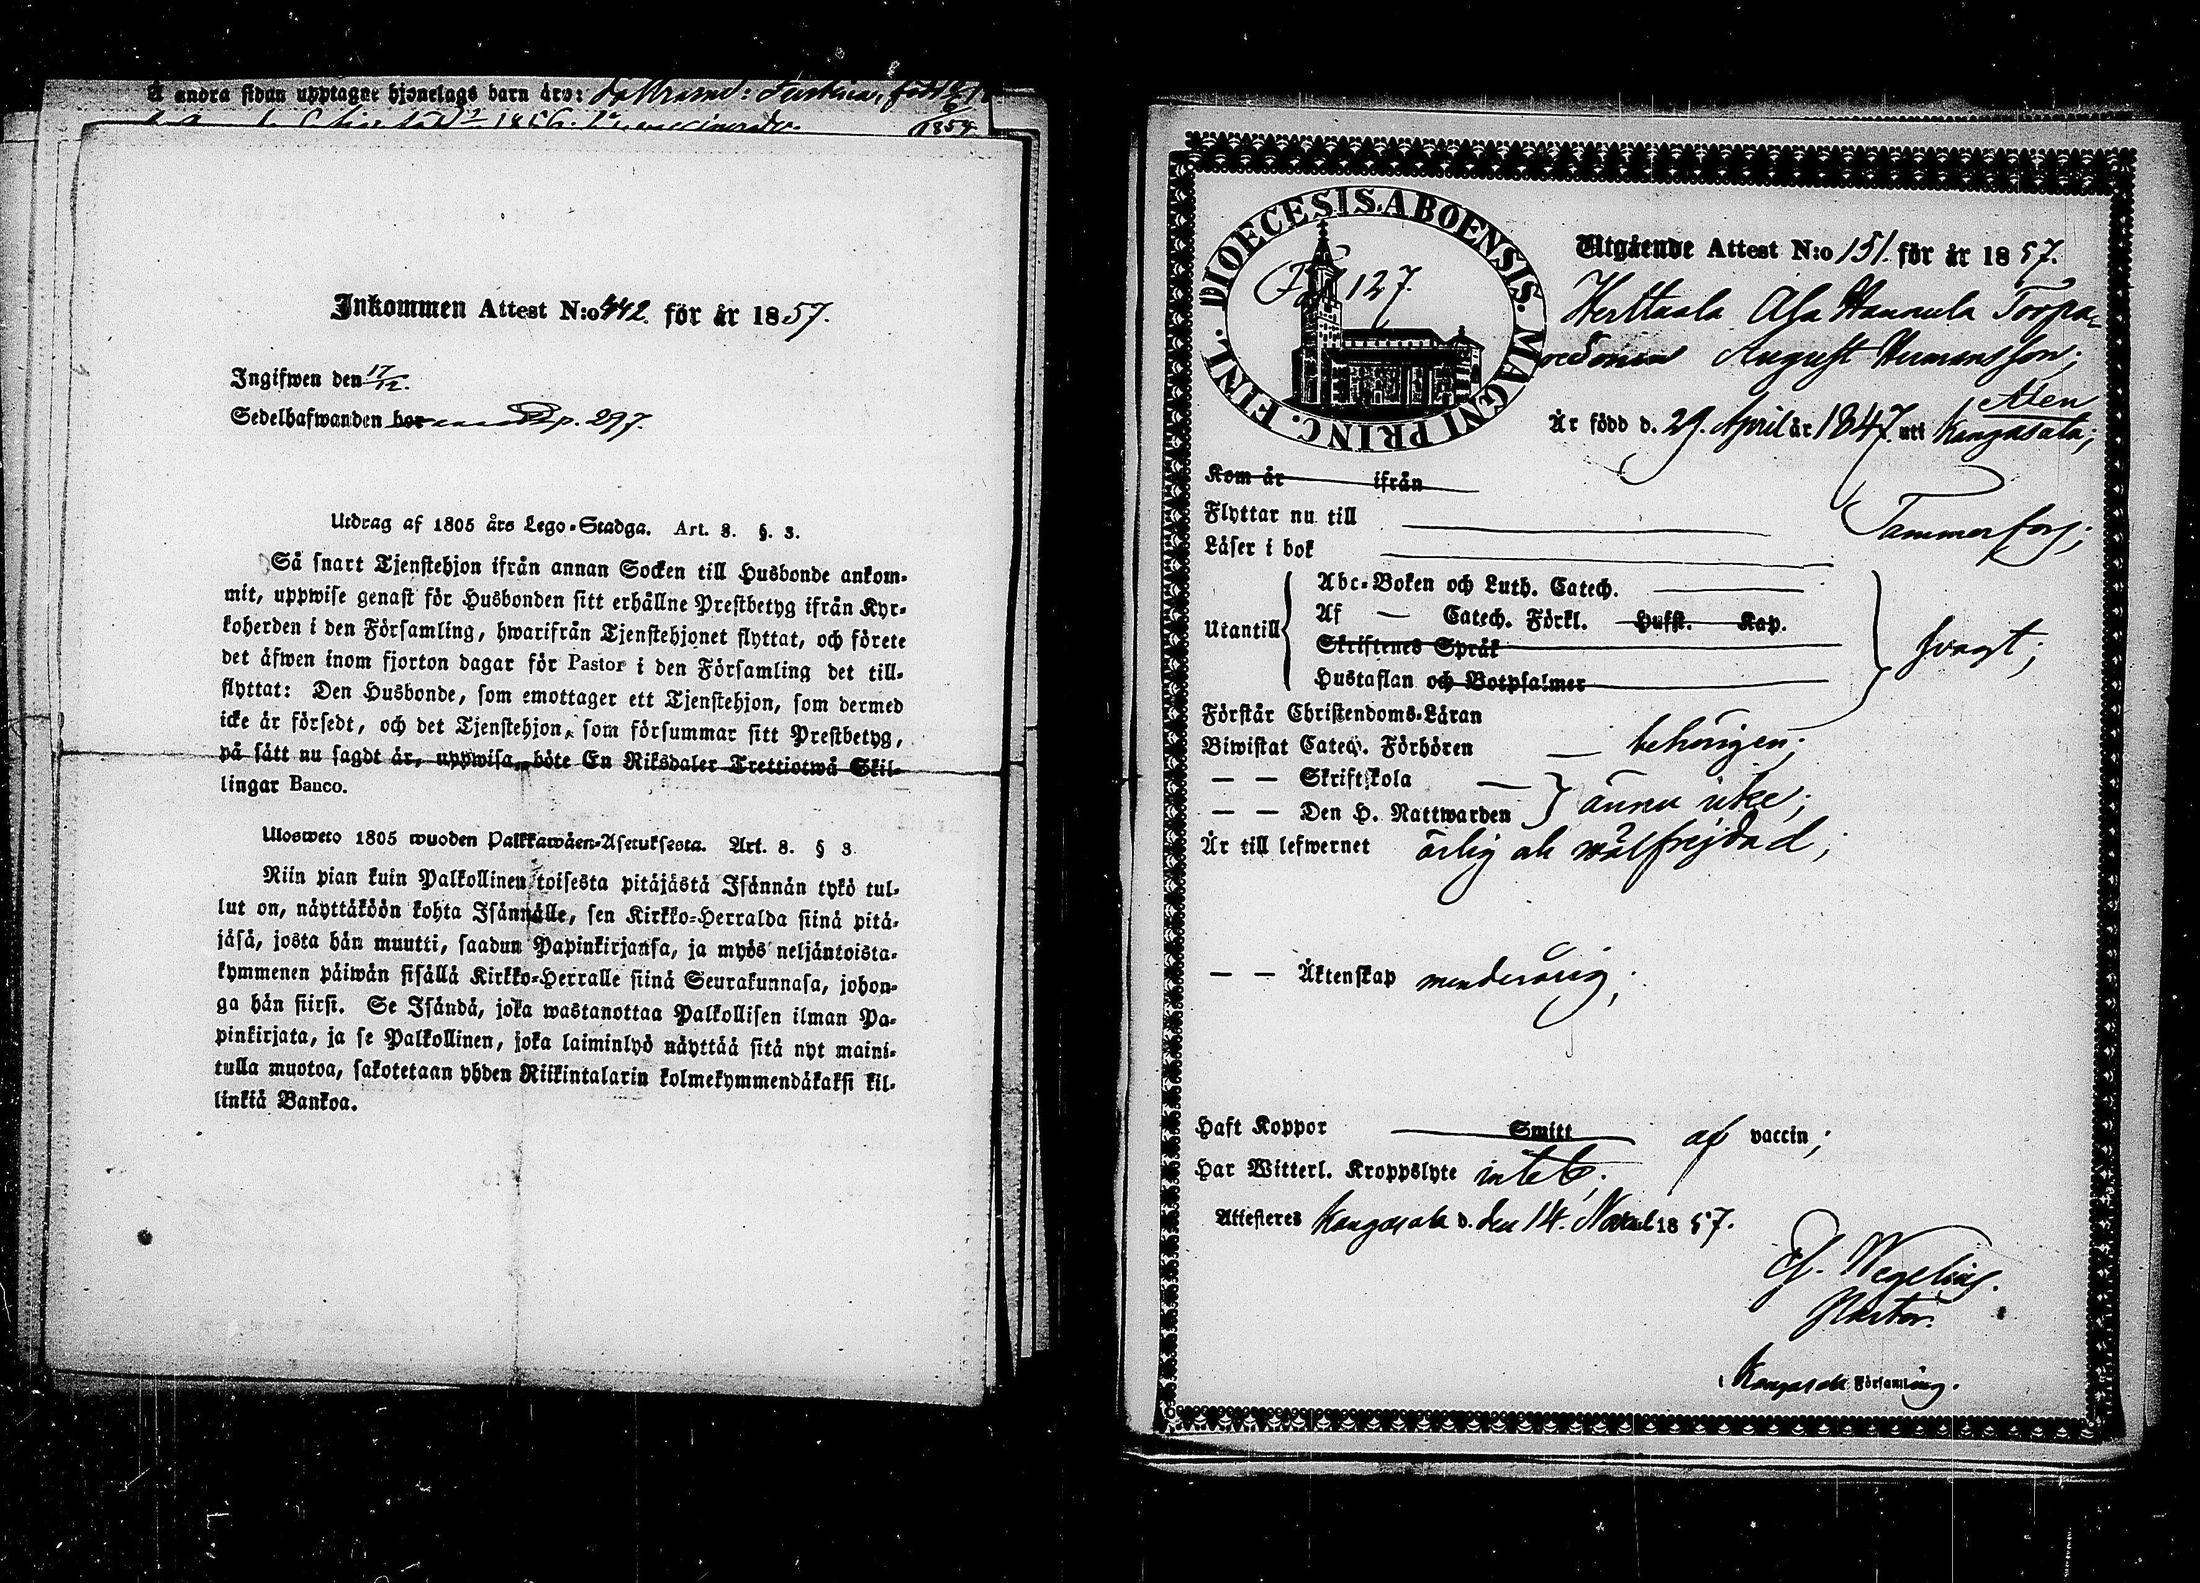 Å andra sidan upptagne hjonelags barn äro:
1854
Inkommen Attest N:o 442. för år 1857.
Ingifwen den 17/12.
Sedelhafwanden bor p. 297.
Utdrag af 1805 års Lego-Stadga. Art. 8. §. 3.
Så snart Tjenstehjon ifrån annan Socken till Husbonde ankom-
mit, uppwise genast för Husbonden sitt erhållne Prestbetyg ifrån Kyr-
koherden i den Församling, hwarifrån Tjenstehjonet flyttat, och förete
det äfwen inom fjorton dagar för Pastor i den Församling det till-
flyttat: Den Husbonde, som emottager ett Tjenstehjon, som dermed
icke är försedt, och det Tjenstehjon, som försummar sitt Prestbetyg,
på sätt nu sagdt är, uppwisa, böte En Riksdaler Trettiotwå Skil-
lingar Banco.
Ulosweto 1805 wuoden Palkkawäen-Asetuksesta. Art. 8. § 3
Niin pian kuin Palkollinen toisesta pitäjästä Isännän tykö tul-
lut on, näyttäköön kohta Isännälle, sen Kirkko-Herralda siinä pitä-
jäsä, josta hän muutti, saadun Papinkirjansa, ja myös neljäntoista-
kymmenen päiwän sisällä Kirkko-Herralle siinä Seurakunnasa, johon-
ga hän siirsi. Se Isändä, joka wastanottaa Palkollisen ilman Pa-
pinkirjata, ja se Palkollinen, joka laiminlyö näyttää sitä nyt maini-
tulla muotoa, sakotetaan yhden Riikintalarin kolmekymmendäkaksi kil-
linkiä Bankoa.
DIOECESIS. ABOENSIS. MAGNI PRINC. FINL.
127.
Utgående Attest N:o 151. för år 1857.
Herttaala Ala Hannula Torpa-
resonen August Hermansson;
Är född d. 29. April år 1847 uti Kangasala;
Kom år ifrån
Flyttar nu till Tammerfors;
Läser i bok
Utantill
Abc-Boken och Luth. Catech.
Af — Catech. Förkl. Hufst. Kap.
Skriftenes Språk
Hustaflan och Botpsalmer
svagt;
Förstår Christendoms-Läran
Biwistat Catech. Förhören — behörigen;
— — Skriftskola —
— — Den H. Nattwarden ännu icke;
Är till lefwernet ärlig och wälfrejdad;
— — Äktenskap minderårig;
Haft Koppor Smitt af vaccin;
Har Witterl. Kroppslyte intet;
Attesteres Kangasala d. den 14. Novemb 1857.
Wegelius.
Pastor.
i Kangasala Församling.